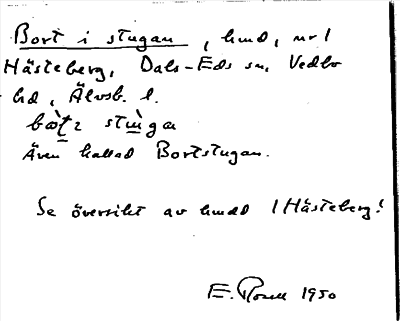 Bort i stugan, hmd, nr 1
Hästeberg, Dals-Eds sn, Vedbo
hd, Älvsb. l.
Även kallad Bortstugan.
Se översikt av hmdd 1 Hästeberg!
E. Rosell 1950